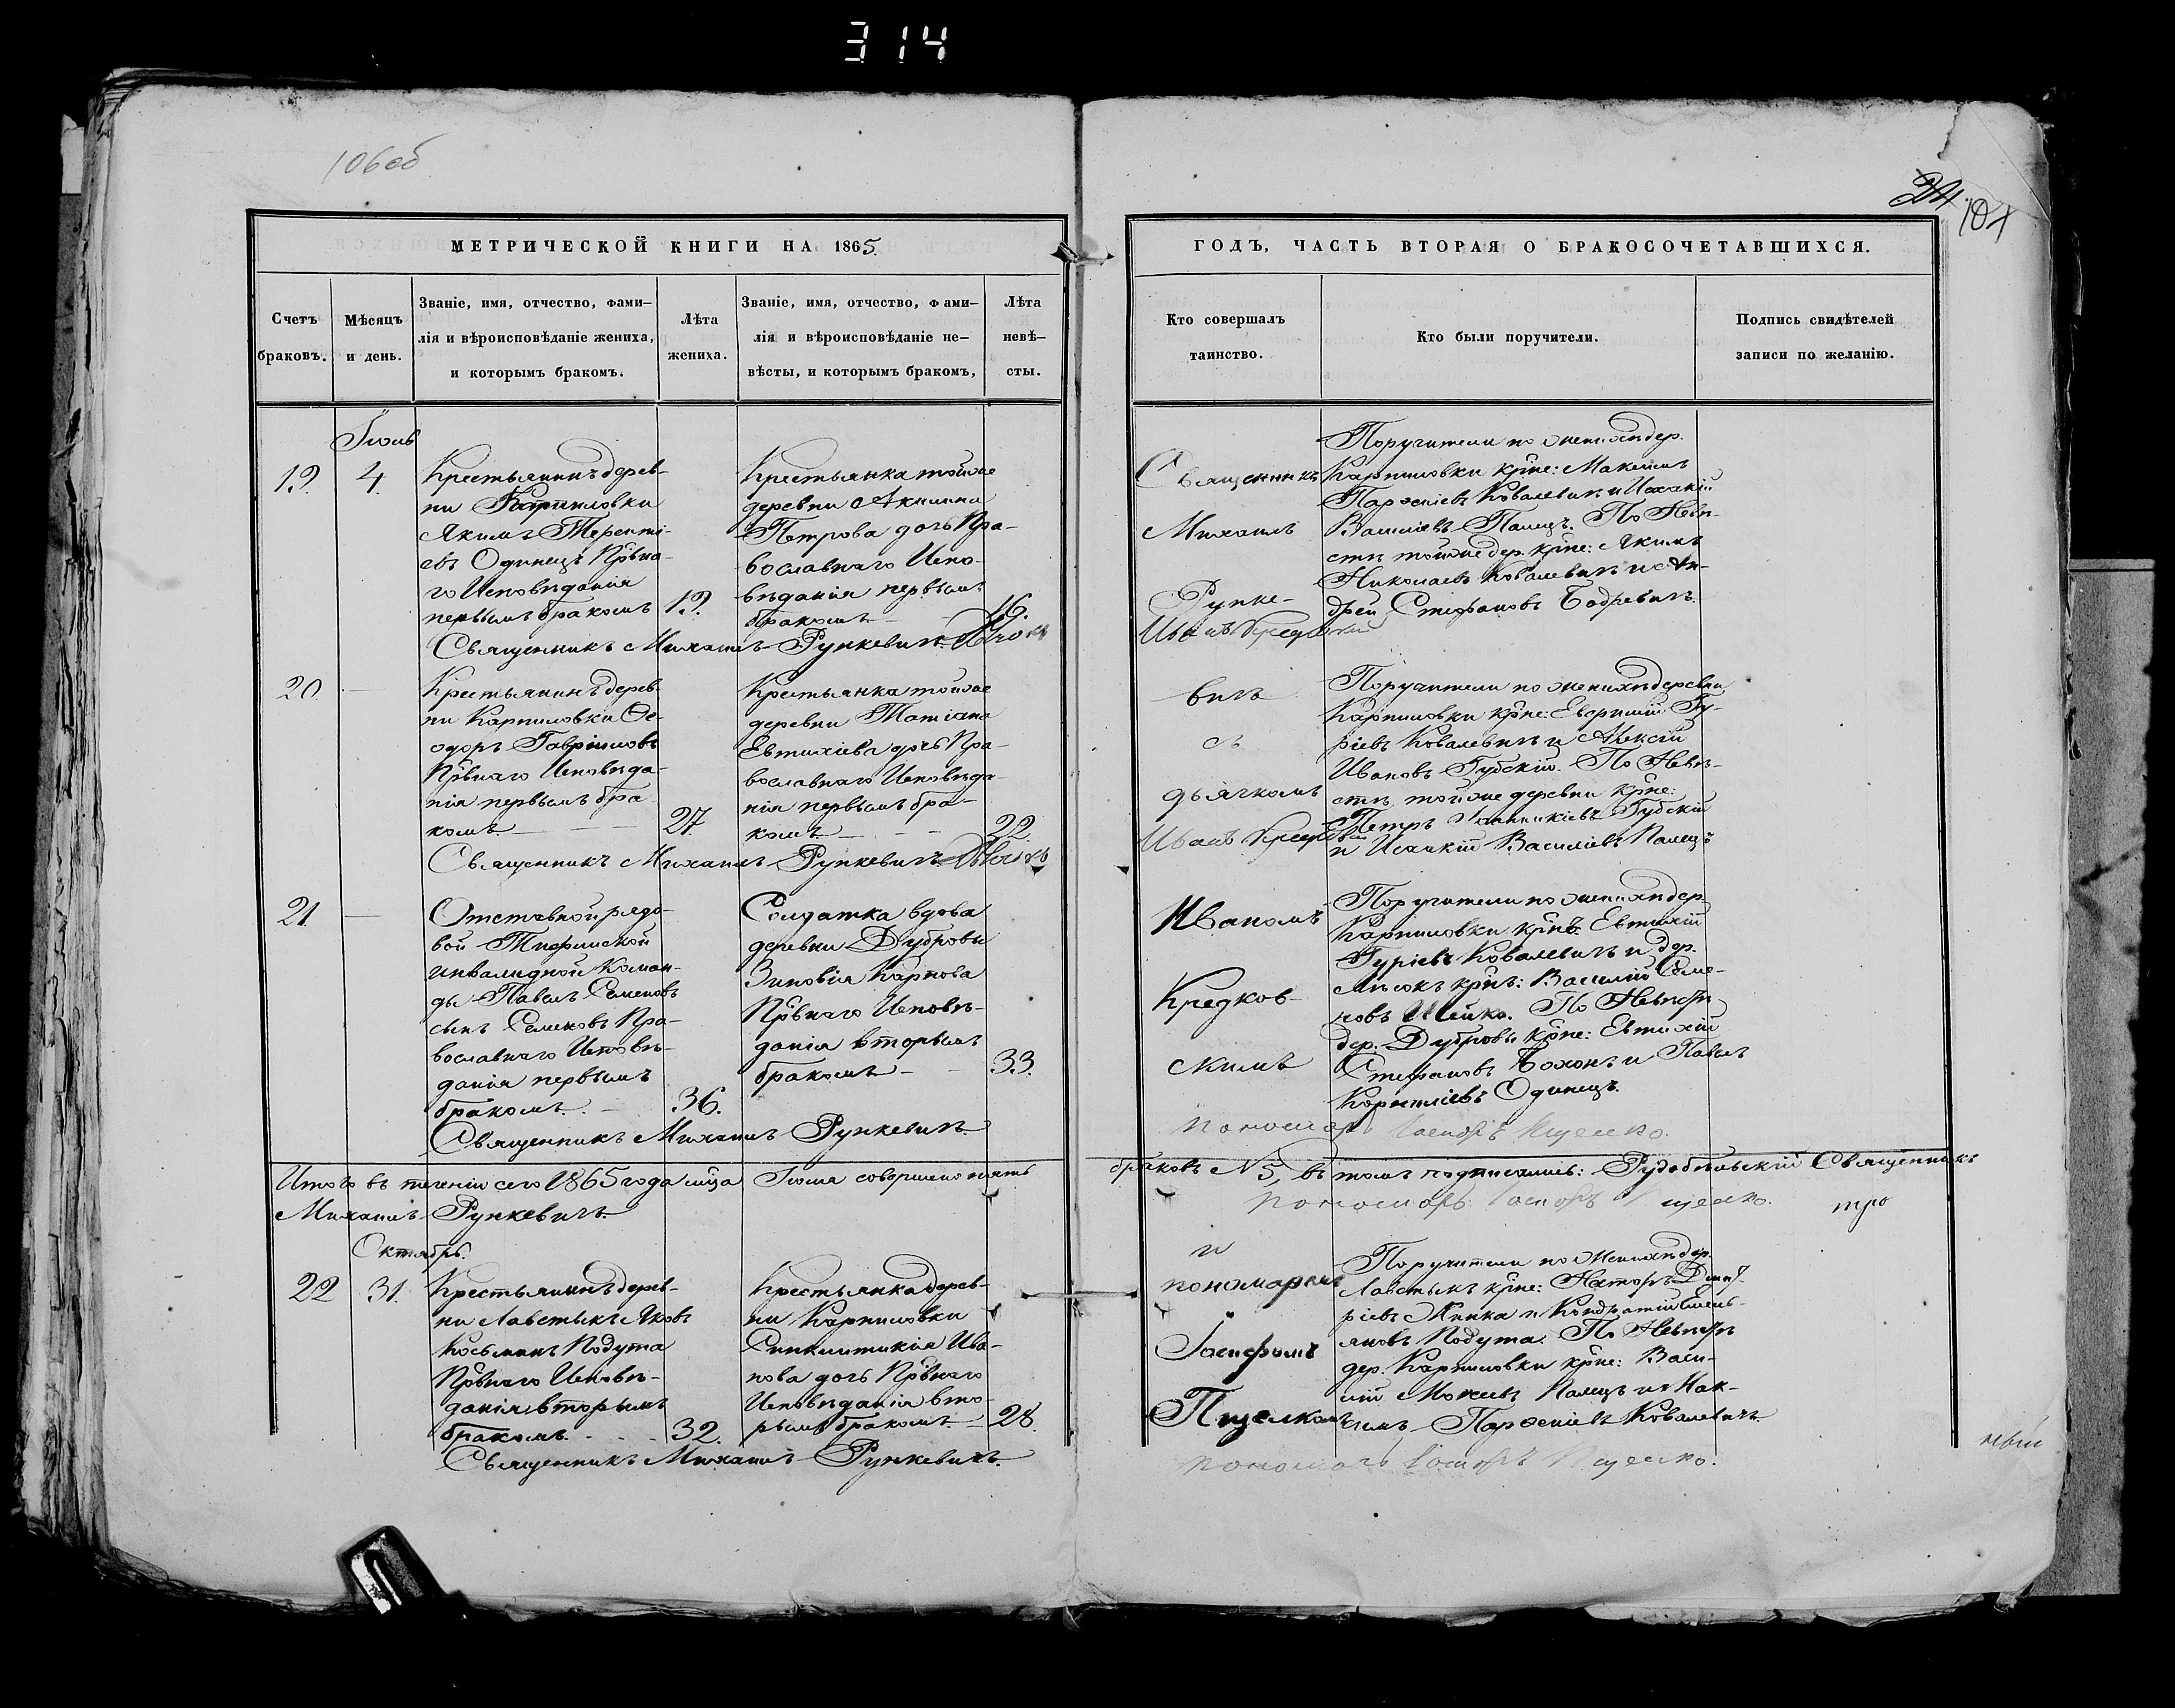 314
106 об
24.
107
МЕТРИЧЕСКОЙ КНИГИ НА 1865.
Счетъ браковъ.
Мѣсяцъ и день.
Званіе, имя, отчество, фами-
лія и вѣроисповѣданіе жениха,
и которымъ бракомъ.
Лѣта жениха.
Званіе, имя, отчество, фами-
лія и вѣроисповѣданіе не-
вѣсты, и которымъ бракомъ,
Лѣта невѣ-
сты.
Іюль
19.
4.
Крестьянинъ дерев-
ни Карпиловки
Якимъ Теренті-
евъ Одинецъ Првна-
го Исповѣданія
первымъ бракомъ
19.
Крестьянка тойже
деревни Акилина
Петрова дочь Пра-
вославнаго Испо-
вѣданія первымъ
бракомъ
16.
Священникъ Михаилъ Рункевичъ
20.
Крестьянинъ дерев-
ни Карпиловки Ѳе-
одоръ Гавріиловъ
Првнаго Исповѣда-
нія первымъ бра-
комъ
27.
Крестьянка тойже
деревни Татіана
Евтихіева дочь Пра-
вославнаго Исповѣда-
нія первымъ бра-
комъ
22.
Священникъ Михаилъ Рункевичъ
21.
Отставной рядо-
вой Тифлиской
инвалидной коман-
ды Павелъ Семеновъ
сынъ Семеновъ Пра-
вославнаго Исповѣ-
данія первымъ
бракомъ.
36.
Солдатка вдова
деревни Дубровы
Зиновія Карпова
Првнаго Исповѣ-
данія вторымъ
бракомъ
33.
Священникъ Михаилъ Рункевичъ.
Итого въ теченіи сего 1865 года мца Іюля совершено пять
Михаилъ Рункевичъ.
Октябрь.
22
31.
Крестьянинъ дерев-
ни Лавстыкъ Яковъ
Косьминъ Подута
Првнаго Исповѣ-
данія вторымъ
бракомъ.
32.
Крестьянка дерев-
ни Карпиловки
Синклитикія Ива-
нова дочь Првнаго
Исповѣданія вто-
рымъ бракомъ
28.
Священникъ Михаилъ Рункевичъ.
ГОДЪ, ЧАСТЬ ВТОРАЯ О БРАКОСОЧЕТАВШИХСЯ.
Кто совершалъ
таинство.
Кто были поручители.
Подпись свидѣтелей
записи по желанію.
Священникъ
Михаилъ
Рунке-
Поручители по женихѣ дер.
Карпиловки крне: Максимъ
Парѳеніевъ Ковалевичъ и Исакій
Василіевъ Палецъ. По Невѣ-
стѣ тойже дер. крне: Якимъ
Николаевъ Ковалевичъ и Ан-
дрей Стефановъ Бодревичъ.
Иванъ Кредковскій
вичъ
съ
дьячкомъ
Поручители по женихѣ деревни
Карпиловки крне: Евстихій Гу-
ріевъ Ковалевичъ и Алексій
Ивановъ Губскій. По Невѣ-
стѣ тойже деревни крне:
Петръ Іоанникіевъ Губскій
и Исакій Василіевъ Палецъ
Иваномъ
Кредков-
скимъ
Поручители по женихѣ дер.
Карпиловки крнъ Евтихій
Гуріевъ Ковалевичъ и дер.
крнъ: Василій Семе-
новъ Шейко. По Невѣстѣ
дер. Дубровы крне: Евтихій
Стефановъ Бохонъ и Павелъ
Корниліевъ Одинецъ.
Пономарь Іасифъ Пщелко.
браковъ N 5, въ томъ подписались: Рудобѣльскій Священникъ
Пономарь Іасифъ Пщелко.
тро
и
пономаремъ
Іасифомъ
Пщелкомъ
Поручители по женихѣ дер.
Лавстыкъ крне: Несторъ Дмит-
ріевъ Жинка и Кондратій Емель-
яновъ Подута. По Невѣстѣ
дер. Карпиловки крне: Васи-
лій Мокеевъ Палецъ и Мак-
симъ Парѳеніевъ Ковалевичъ
Пономарь Іасифъ Пщелко.